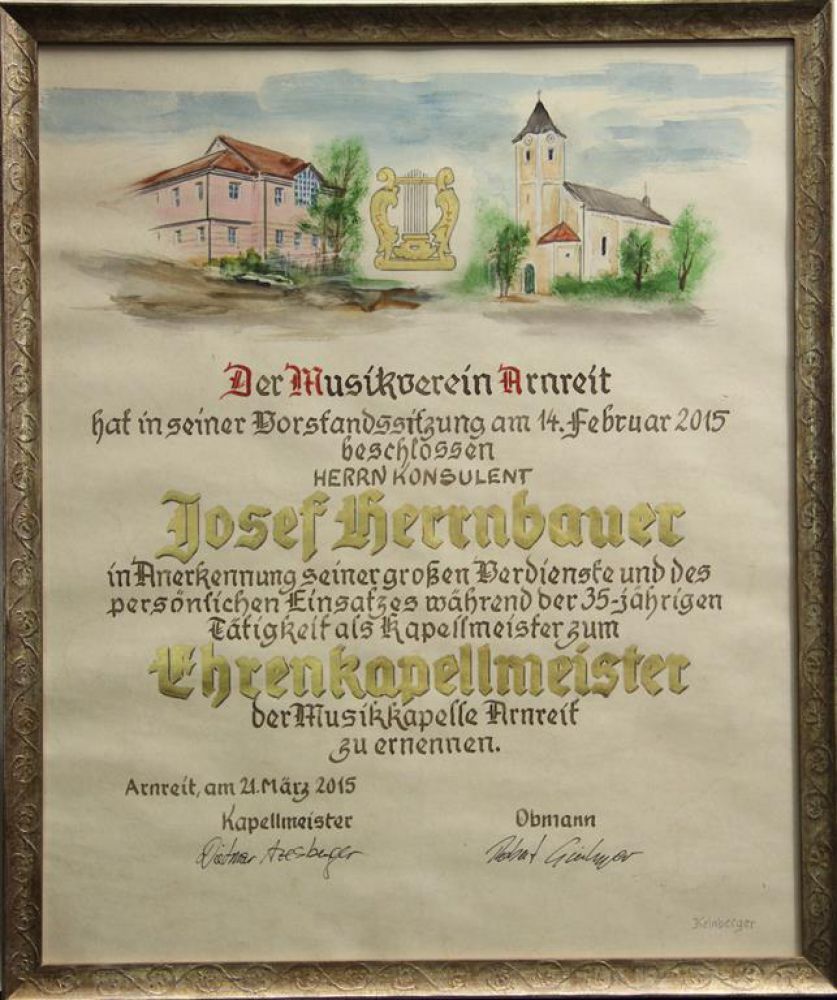 Der Musikverein Arnreit
hat in seiner Vorstandssitzung am 14. Februar 2015
beschlossen
HERRN KONSULENT
Josef Herrnbauer
in Anerkennung seiner großen Verdienste und des
persönlichen Einsatzes während der 35-jährigen
Tätigkeit als Kapellmeister zum
Ehrenkapellmeister
der Musikkapelle Arnreit
zu ernennen.
Arnreit, am 21. März 2015
Kapellmeister Obmann
Dietmar